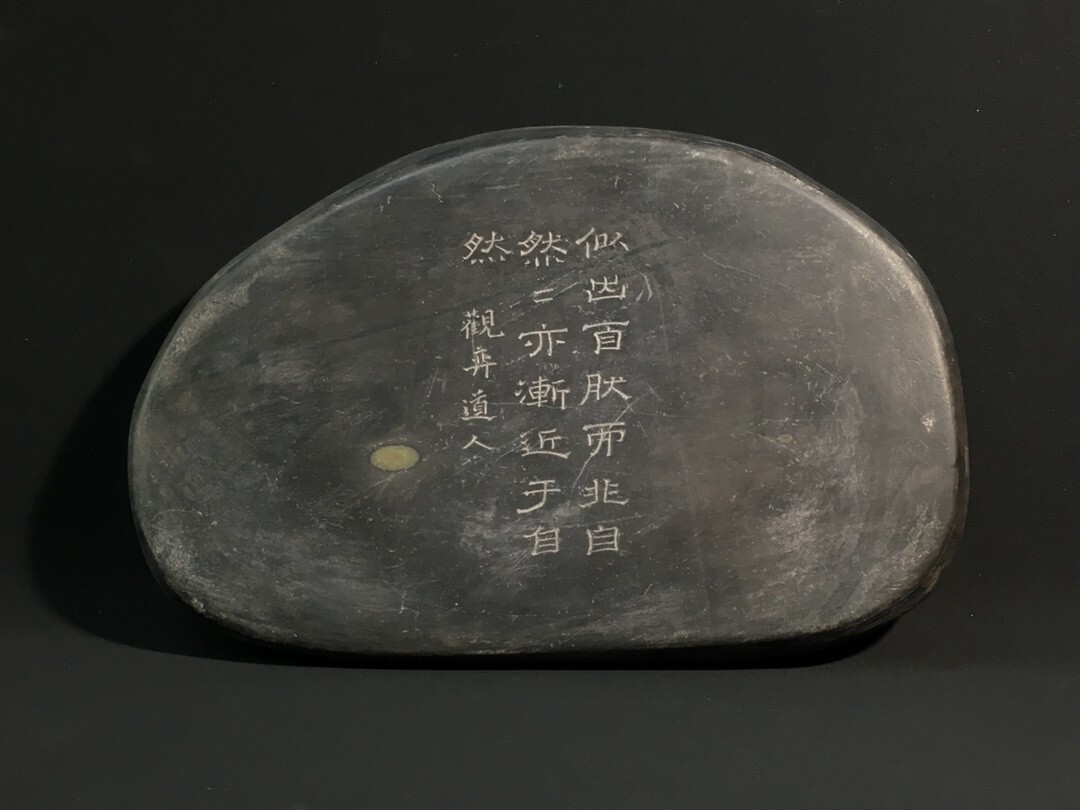 似出自肰而非自
然〻亦漸近于自
然 觀弈道人